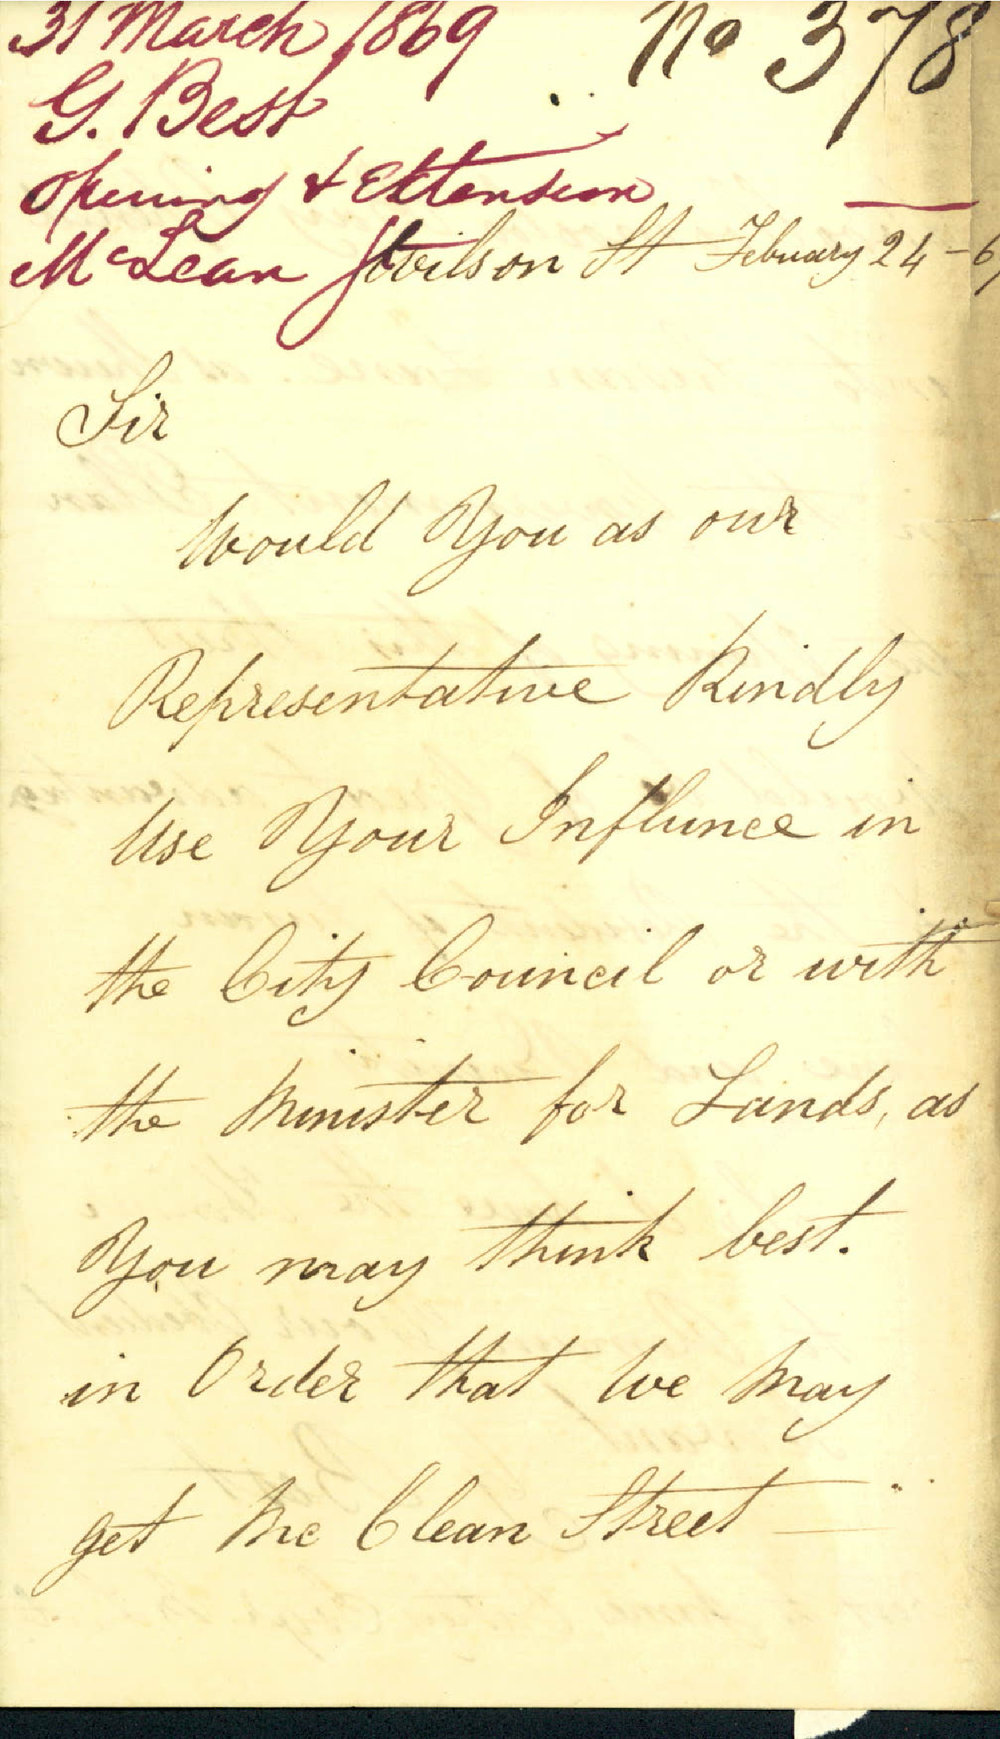 31 March 1869 No 378
G. Best
Opening & Extension
McLean St Wilson St Febuary 24 - 69
Sir
Would You as our
Representative Kindly
Use Your Influnce in
the City Council or with
the Minister for Lands, as
You may think best.
in Order that We May
get Mc Clean Street